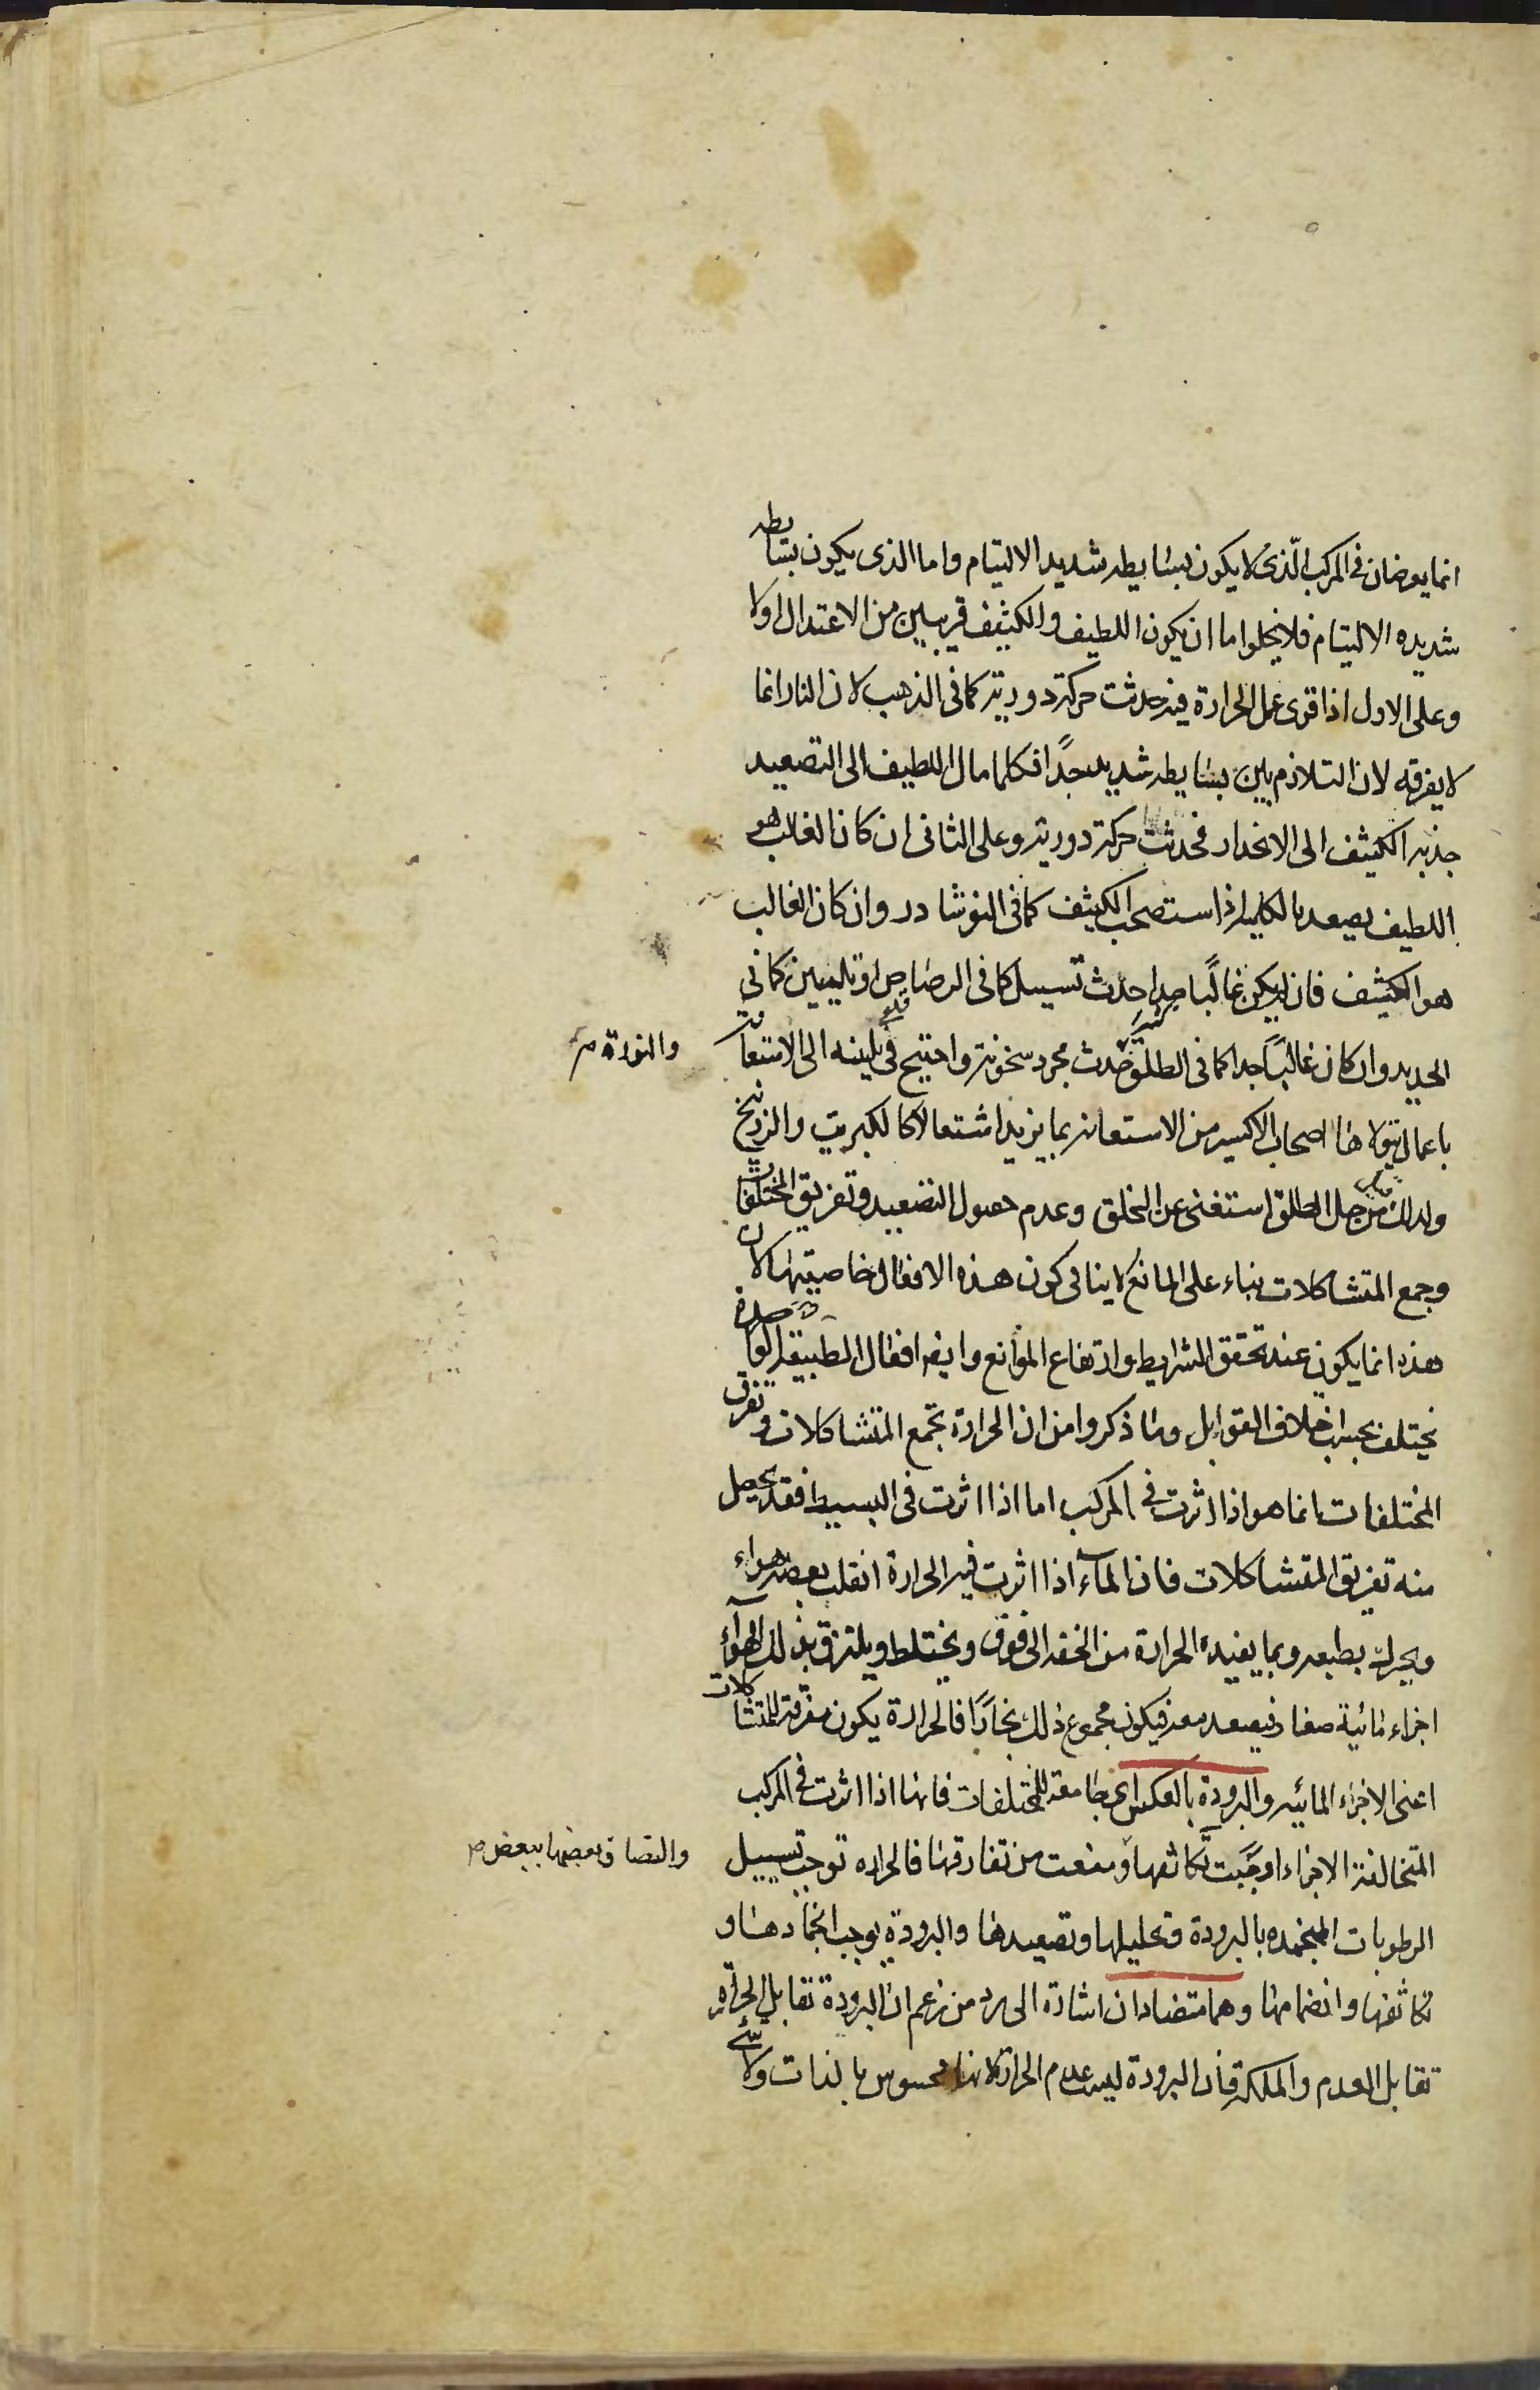 انما يعرضان فى المركب الّذى لا يكون بسايطه شديد الالتيام واما الذى يكون بسايطه
شديده الالتيام فلا يخلوا ما ان يكون اللطيف والكثيف قريبين من الاعتدال اولا
وعلى الاول اذا قوى عمل الحرارة فيه حدثت حركة دورية كما فى الذهب لان النار انما
لا يفرقه لان التلازم بين بسايطه شديد جدًا فكلما مال اللطيف الى التصعيد
جذبه الكثيف الى الانحدار فحدثت حركة دورية وعلى الثانى ان كان الغالب هو
اللطيف يصعد بالكلية اذا استصحب الكثيف كما فى النوشادر وان كان الغالب
هو الكثيف فان لم يكن غالبًا جدا حدث تسييل كما فى الرصاص او تليين كما فى
الحديد وان كان غالبًا جدا كما فى الطلق حدث مجرد سخونة واحتيج فى تليينه الى الاستعانة
والنورة
باعمال يتولاها اصحاب الاكسير من الاستعانة بما يزيد اشتعالا كالكبريت والزرنيخ
ولذلك من حل الطلق استغنى عن الخلق وعدم حصول التصعيد وتفريق المختلفات
وجمع المتشاكلات بناء على المانع لا ينافى كون هذه الافعال خاصيتها لان
هذه انما يكون عند تحقق الشرايط وارتفاع الموانع وايضا افعال الطبيعة الواحدة
يختلف بحسب اختلاف القوابل وما ذكروا من ان الحرارة تجمع المتشاكلات وتفرق
المختلفات انما هو اذا اثرت فى المركب اما اذا اثرت فى البسيط فقد يحصل
منه تفريق المتشاكلات فان الماء اذا اثرت فيه الحرارة انقلب بعضه هواء
ويحرك بطبعه وبما يفيده الحرارة من الخفه الى فوق ويختلط ويلتزق بذلك الهواء
اجزاء مائية صغار فيصعد معه فيكون مجموع ذلك بخارًا فالحرارة يكون مفرقة للمتشاكلات
اعنى الاجزاء المائيه والبرودة بالعكس اى جامعة للمختلفات فانها اذا اثرت فى المركب
المتخالفة الاجزاء اوجبت تكاثفها ومنعت من تفارقها فالحراره توجب تسييل
والتصاق بعضها ببعض
الرطوبات المنجمده بالبرودة وتحليلها وتصعيدها والبرودة يوجب انجمادها و
تكاثفها وانضمامها وهما متضادان اشارة الى رد من زعم ان البرودة تقابل الحرارة
تقابل العدم والملكة فان البرودة ليست عدم الحرارة لانها محسوس بالذات ولا شئ